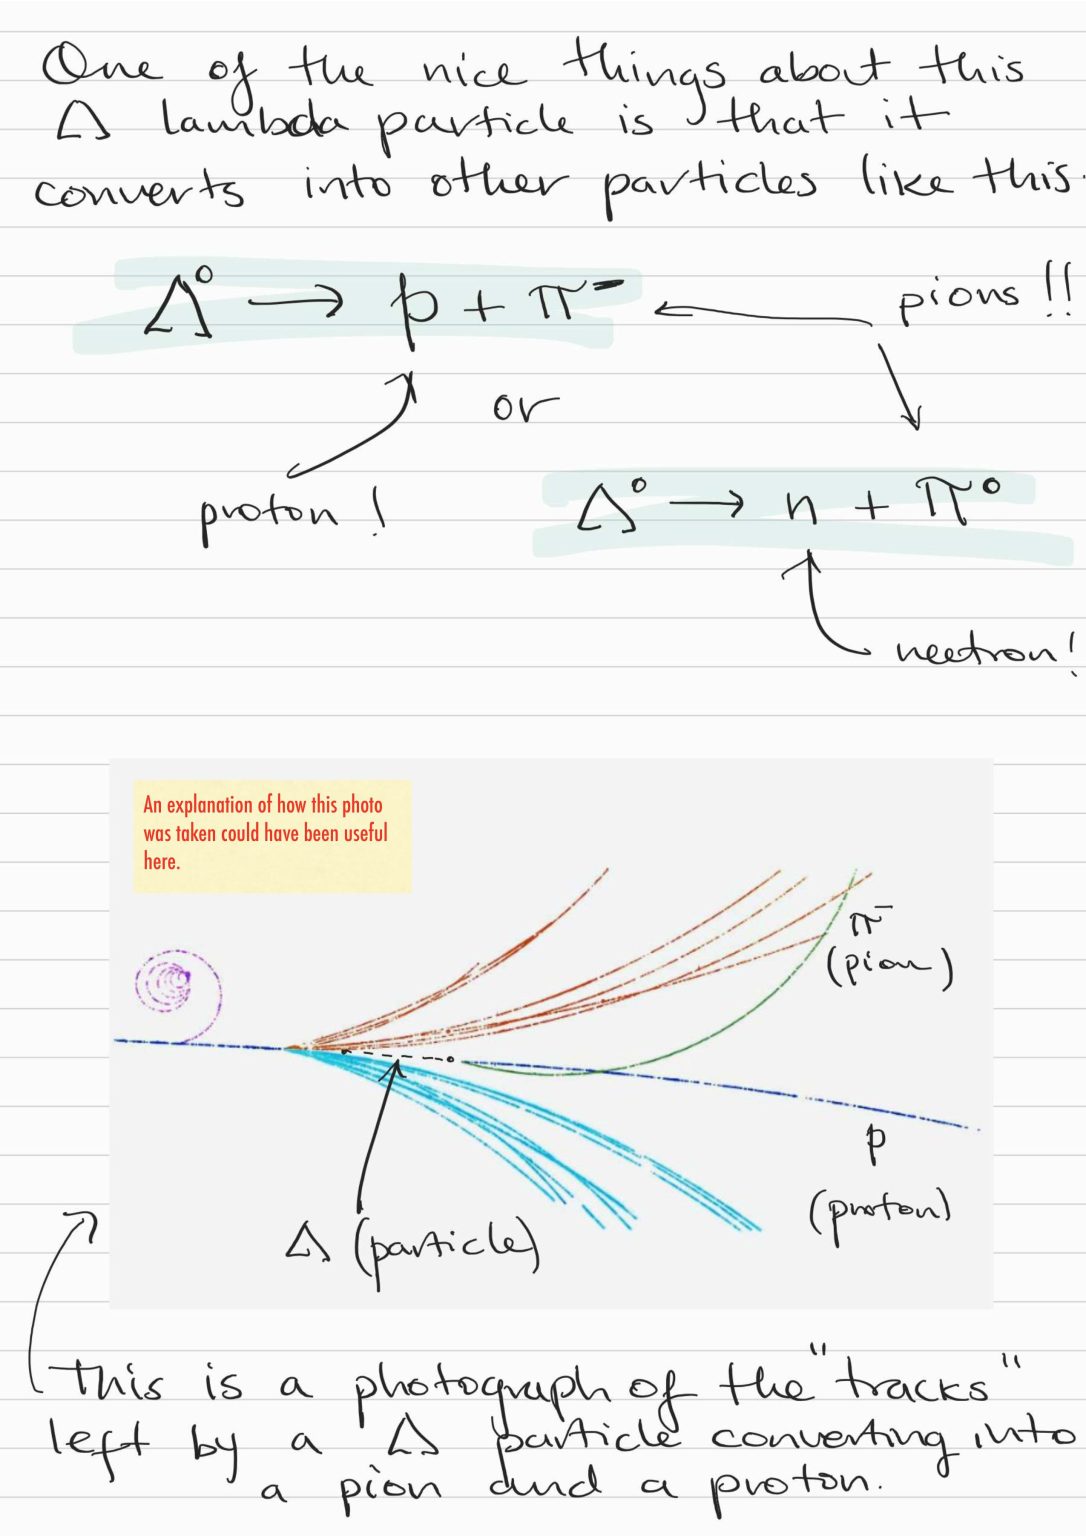 One of the nice things about this
Λ lambda particle is that it
converts into other particles like this.
Λ° → p + π⁻
pions !!
or
proton !
Λ° → n + π°
neutron!
An explanation of how this photo
was taken could have been useful
here.
π⁻
(pion)
p
(proton)
Λ (particle)
This is a photograph of the "tracks"
left by a Λ particle converting into
a pion and a proton.